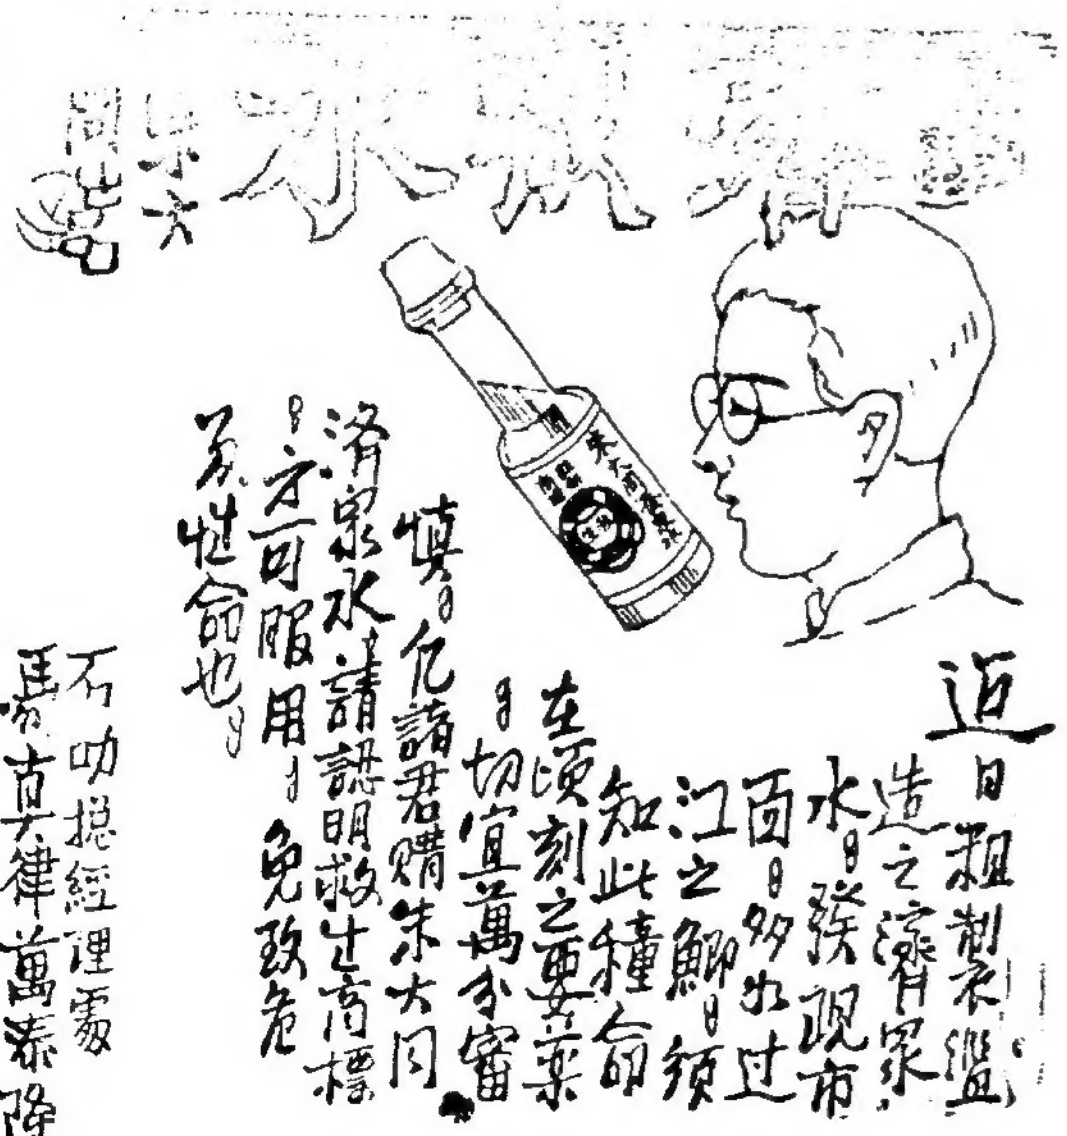 濟眾水
朱大同
朱大同濟眾水
近日粗製濫
造之濟眾
水、發現市
面、多如过
江之鯽、須
知此種命
在頃刻之要药
、切宜萬分審
慎、凡諸君購朱大同
濟眾水、請認明救生商標
、方可服用、免致危
及性命也、
石叻總經理處
馬真律萬泰隆